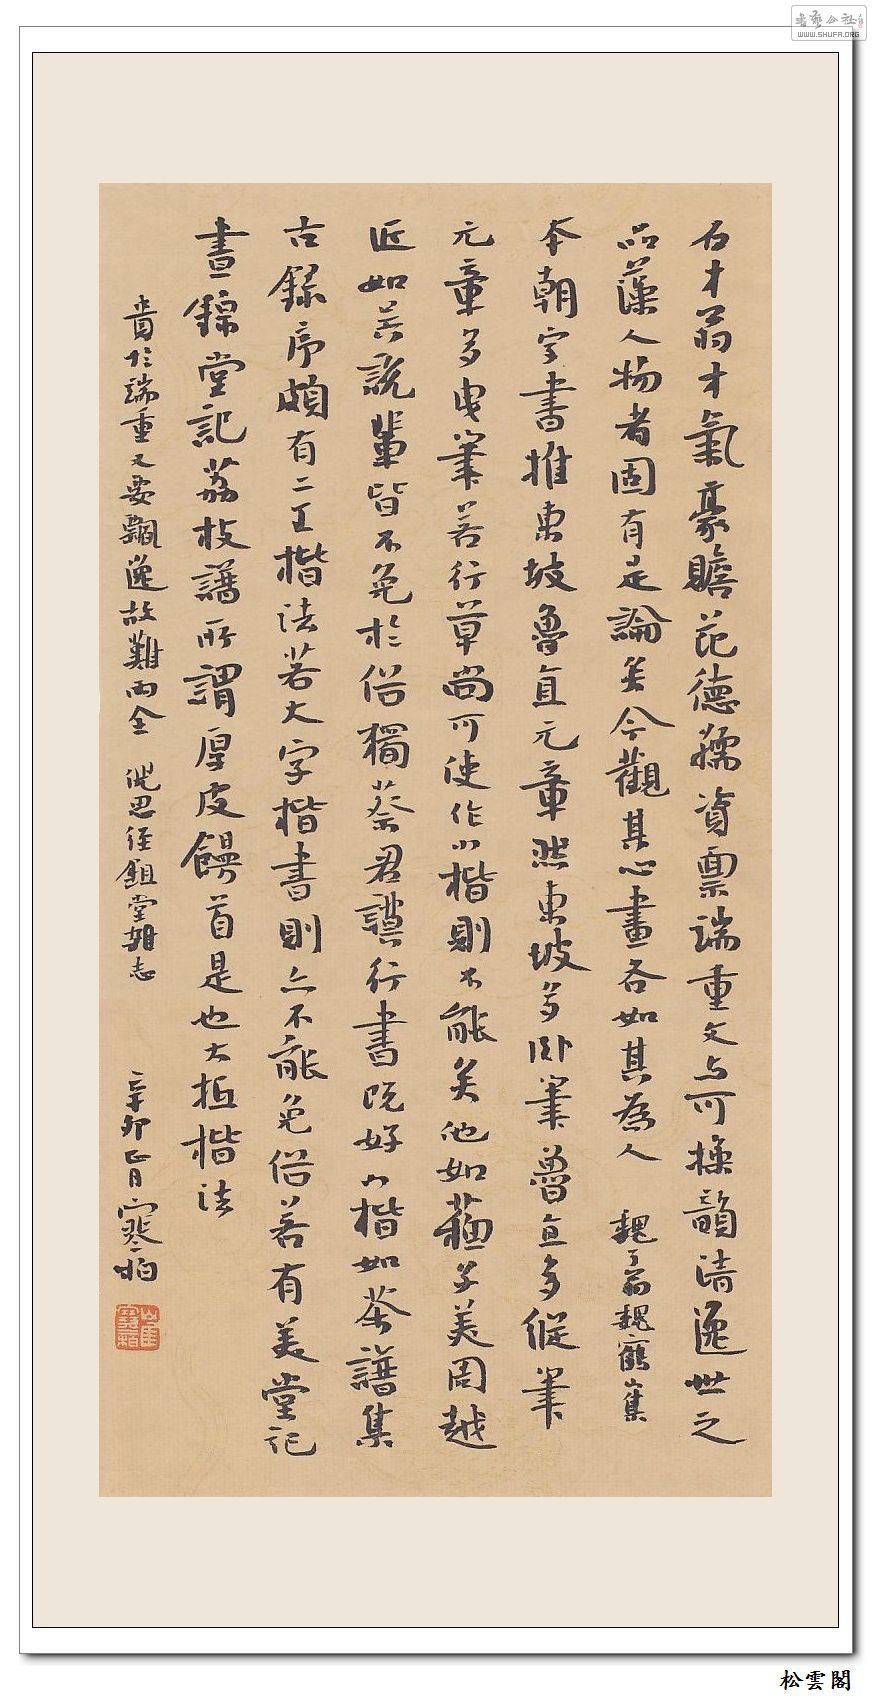 石才翁才氣豪贍范德孺資禀端重文与可操韻清逸世之
品藻人物者固有定論矣今觀其心畫各如其為人 魏了翁魏鶴集
本朝字書推東坡魯直元章然東坡多卧筆魯直多縱筆
元章多曳筆若行草尚可使作小楷則不能矣他如蘇子美周越
近如吳說輩皆不免於俗獨蔡君謨行書既好小楷如茶譜集
古錄序頗有二王楷法若大字楷書則亦不能免俗若有美堂記
晝錦堂記荔枝譜所謂厚皮饅首是也大抵楷法
貴於端重又要飄逸故難兩全 倪思經鉏堂雜志
辛卯正月寒柏
書法公社
WWW.SHUFA.ORG
松雲閣